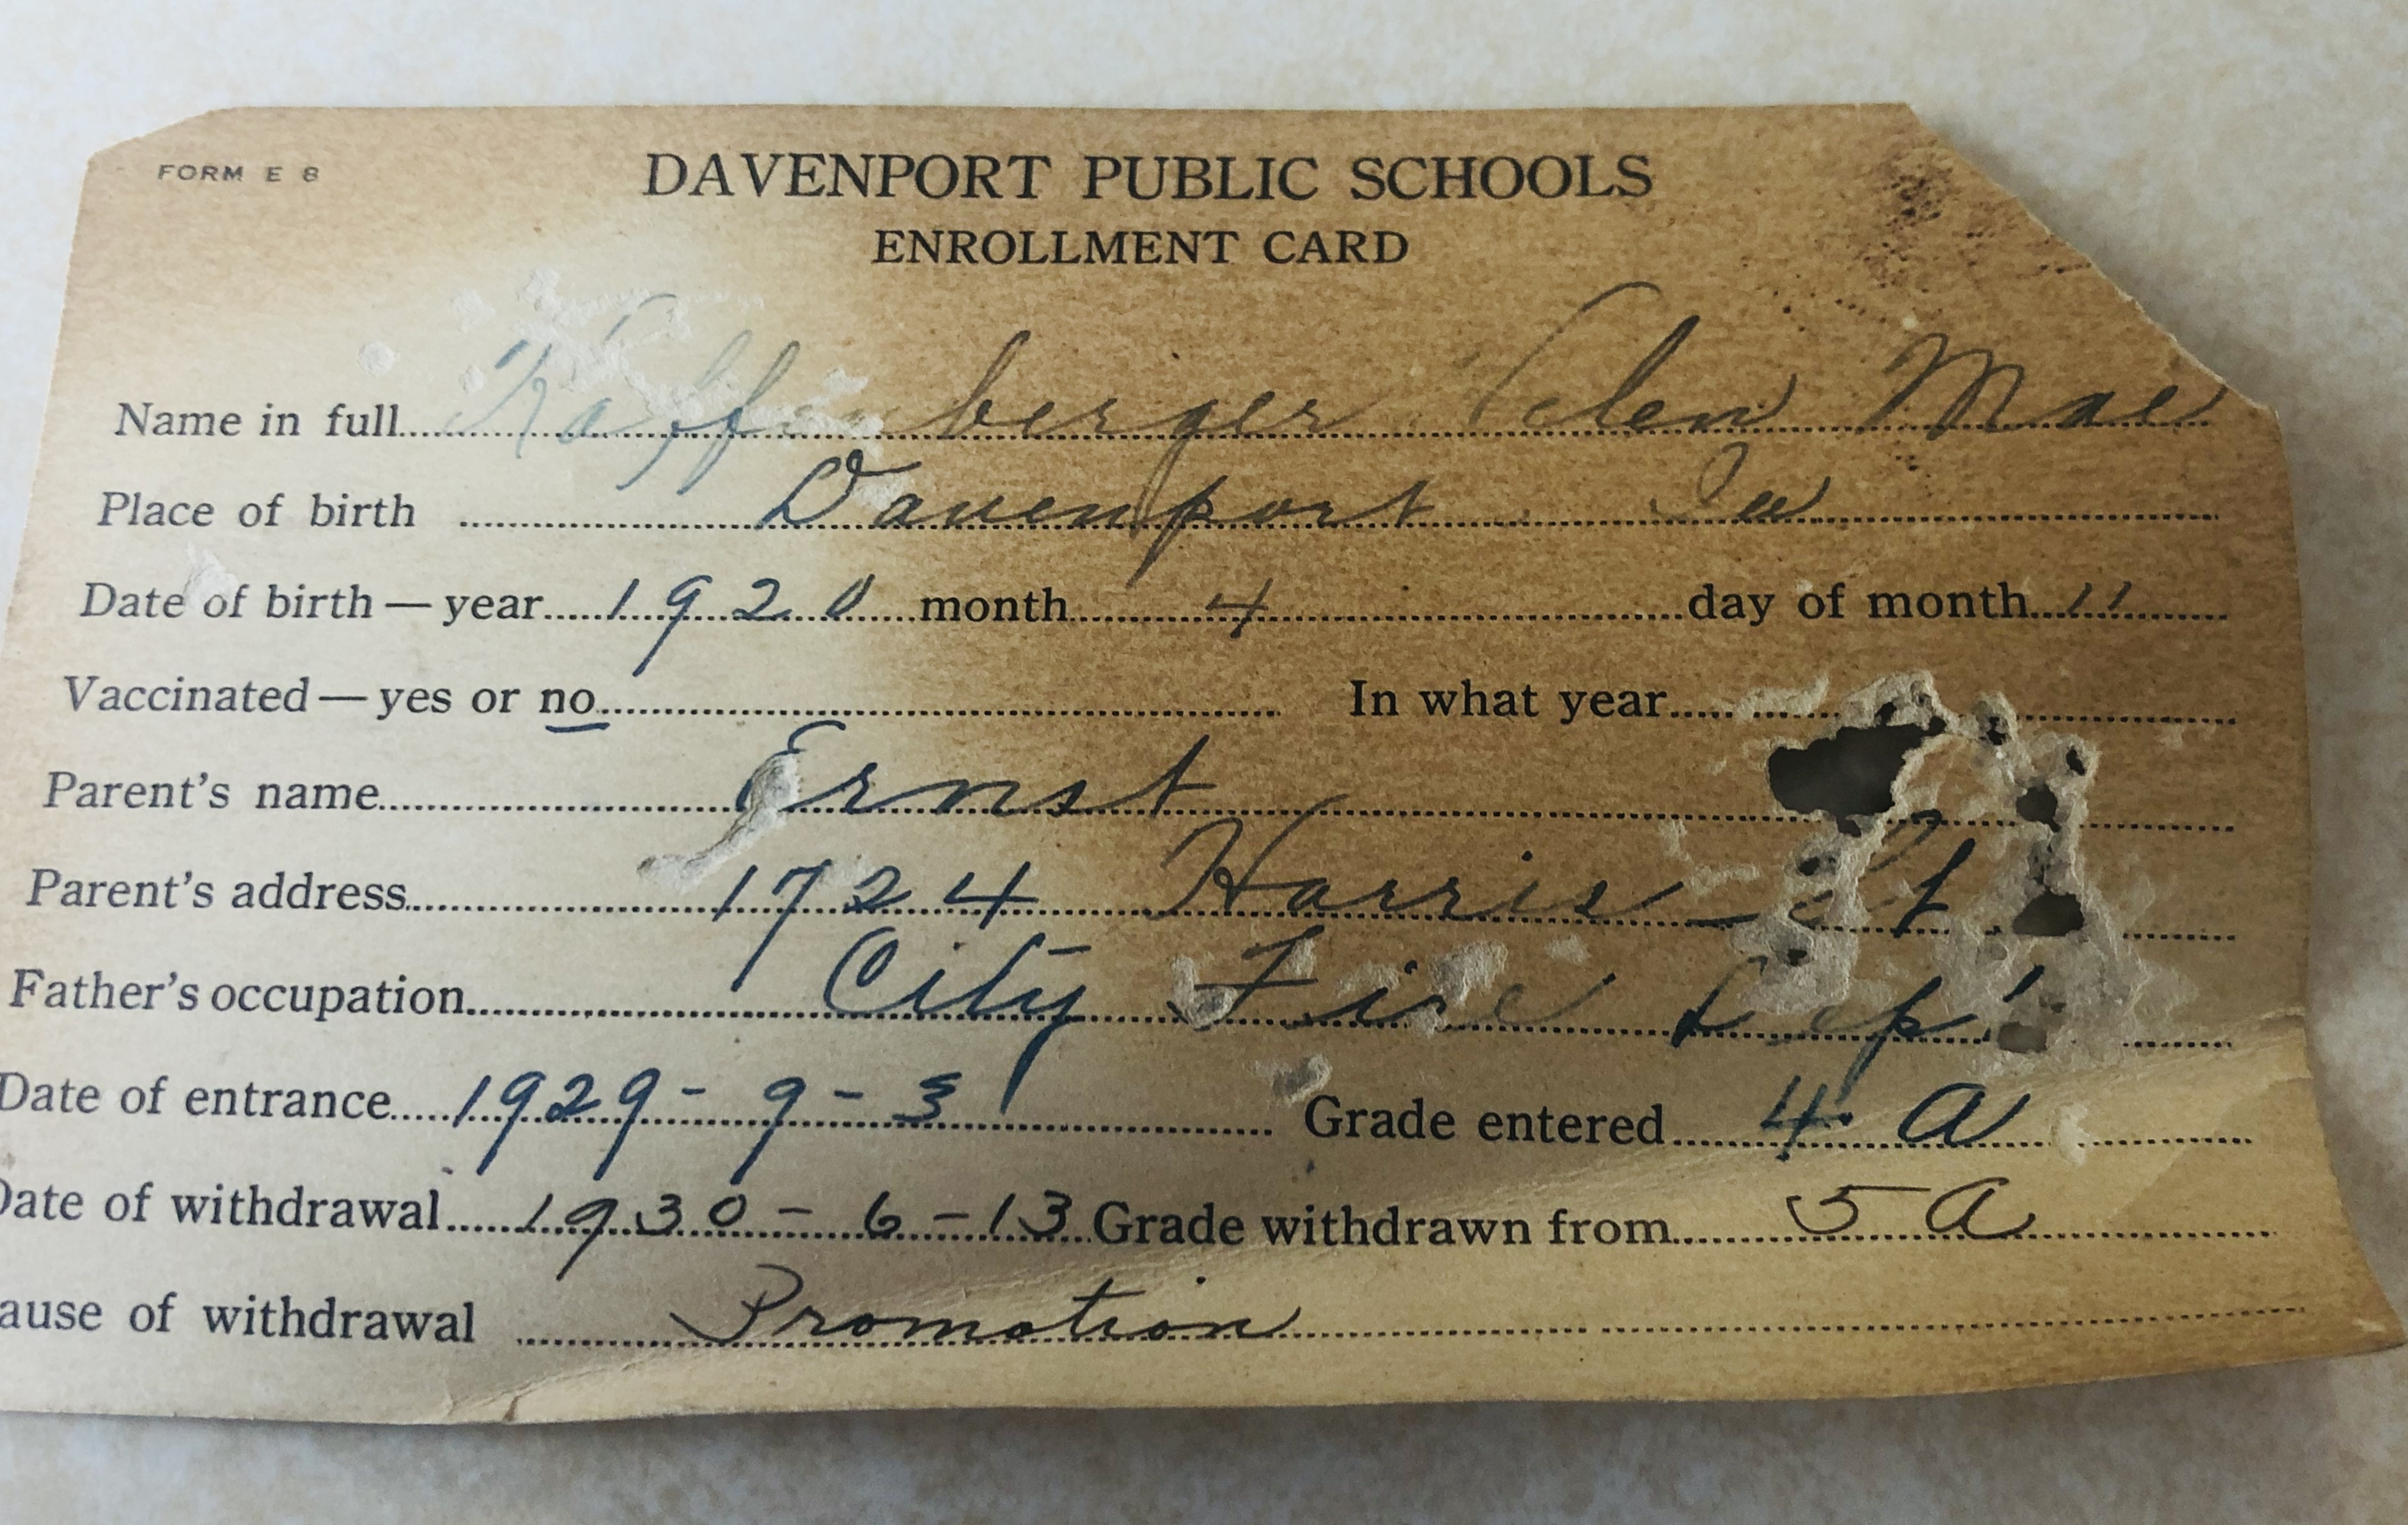 FORM E 8
DAVENPORT PUBLIC SCHOOLS
ENROLLMENT CARD
Name in full Kaffenberger Mae
Place of birth Davenport Ia
Date of birth — year 1920 month 4 day of month 11
Vaccinated — yes or no In what year
Parent's name Ernst
Parent's address 1724 Harris St
Father's occupation City Fire Dep't
Date of entrance 1929 - 9 - 3 Grade entered 4 A
Date of withdrawal 1930 - 6 - 13 Grade withdrawn from 5 A
ause of withdrawal Promotion